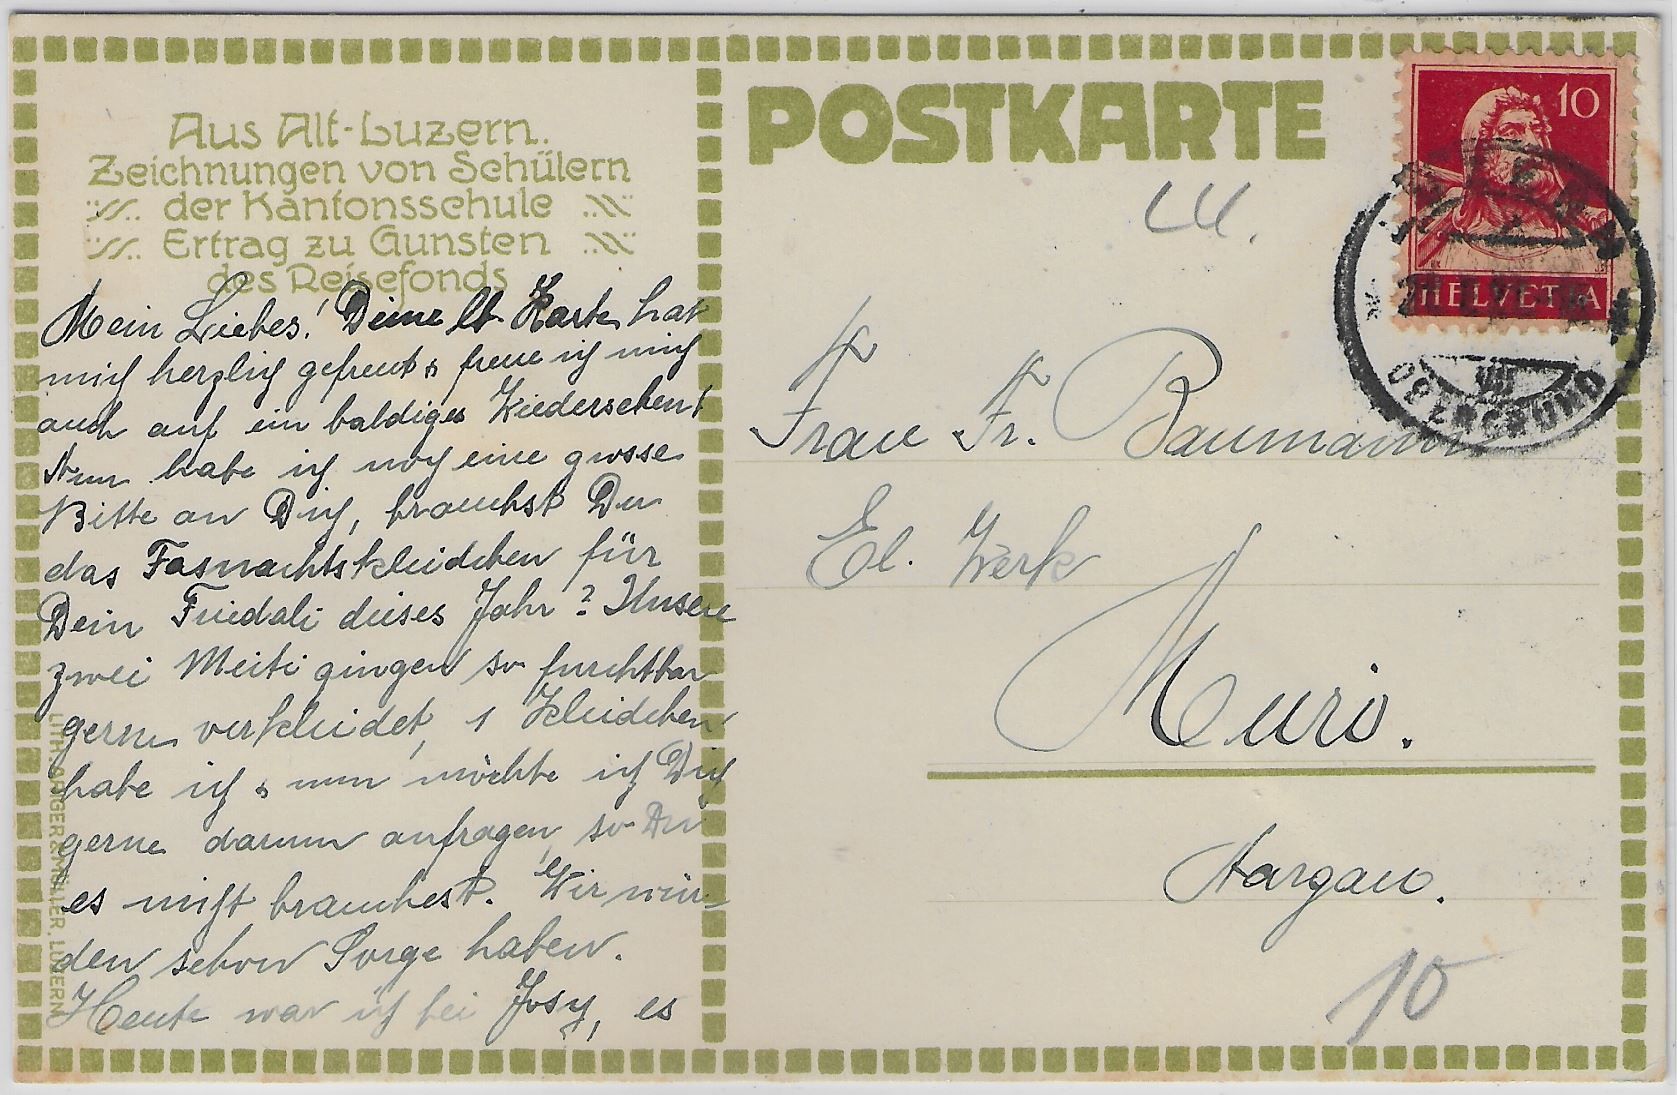 Aus Alt-Luzern.
Zeichnungen von Schülern
der Kantonsschule
Ertrag zu Gunsten
des Reisefonds
Mein Liebes! Deine lb. Karte hat
mich herzlich gefreut & freue ich mich
auch auf ein baldiges Wiedersehen!
Nun habe ich noch eine grosse
Bitte an Dich, brauchst Du
das Fasnachtskleidchen für
Dein Friedali dieses Jahr? Unsere
zwei Meiti gingen so furchtbar
gerne verkleidet, 1 Kleidchen
habe ich & nun möchte ich Dich
gerne darum anfragen, so Du
es nicht brauchest. Wir wür-
den schon Sorge haben.
Heute war ich bei Josy, es
LITH. ARIGER & MÜLLER, LUZERN
POSTKARTE
10
HELVETIA
LUZERN
OBERGRUND
Frau Fr. Baumann
El. Werk
Muri.
Aargau.
10